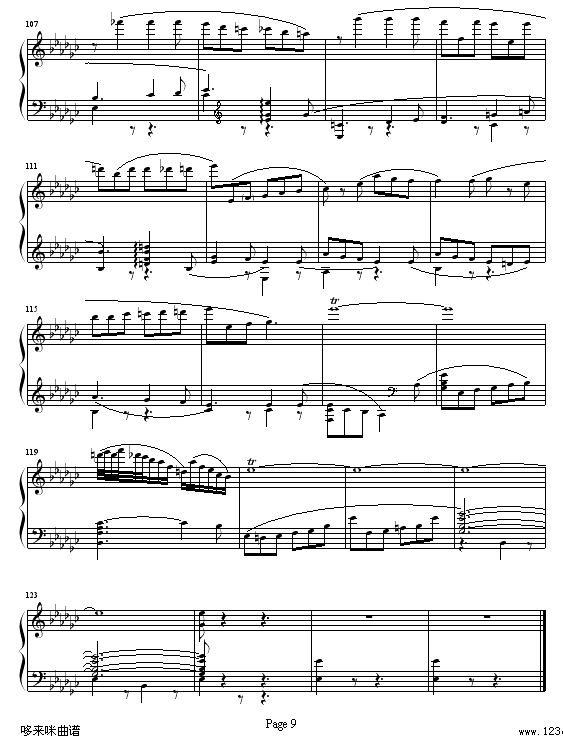 107
111
115
tr
tr
119
tr
123
Page 9
哆来咪曲谱
www.123